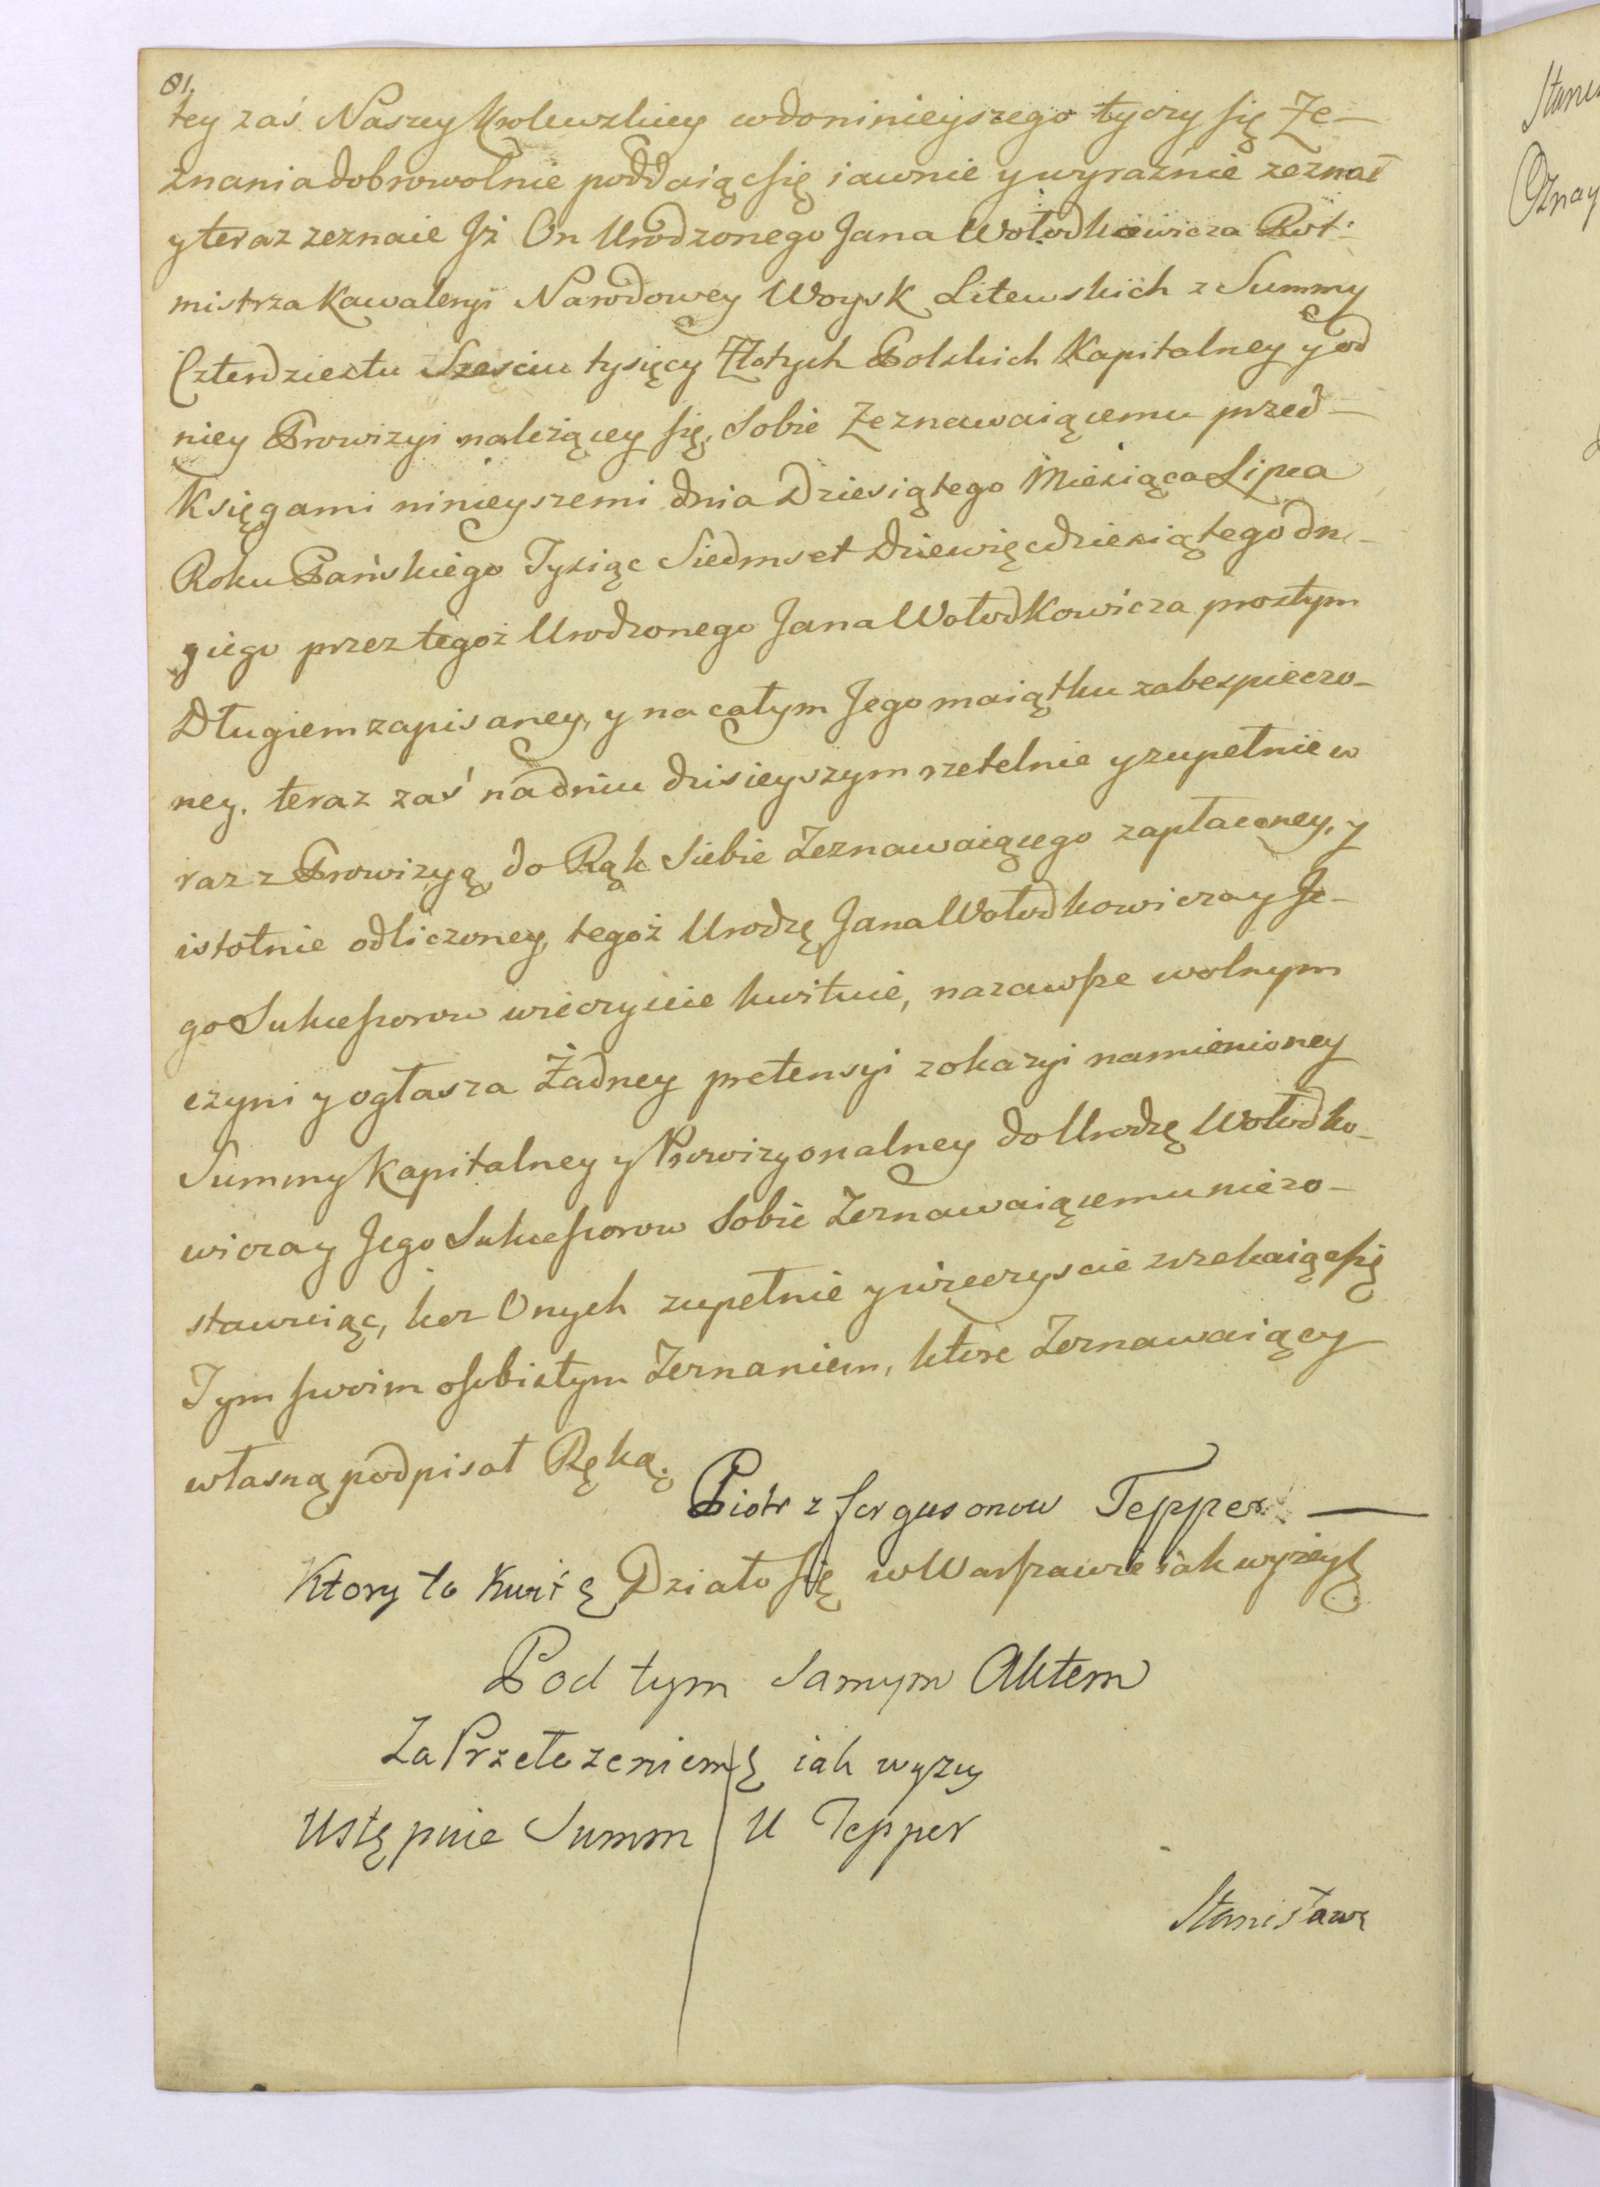 81.
tey zaś Naszey Krolewskiey co do ninieyszego tyczy się Ze-
znania dobrowolnie poddaiąc się iawnie y wyraźnie zeznał
y teraz zeznaie Jż On Urodzonego Jana Wołodkowicza Rot-
mistrza Kawaleryi Narodowey Woysk Litewskich z Summy
Czterdziestu Sześciu tysięcy Złotych Polskich Kapitalney y od
niey Prowizyi należącey się, Sobie Zeznawaiącemu przed
Księgami ninieyszemi dnia Dziesiątego Miesiąca Lipca
Roku Pańskiego Tysiąc Siedmset Dziewięćdziesiątego dru-
giego przez tegoż Urodzonego Jana Wołodkowicza prostym
Długiem zapisaney, y na całym Jego maiątku zabespieczo-
ney. teraz zaś na dniu dzisieyszym rzetelnie y zupełnie w
raz z Prowizyą do Rąk Siebie Zeznawaiącego zapłaconey, y
istotnie odliczoney, tegoż Urodzę Jana Wołodkowicza y Je-
go Sukcessorow wieczyście kwituie, nazawsze wolnym
czyni y ogłasza Żadney pretensyi z okazyi namienioney
Summy Kapitalney y Prowizyonalney do Urodzę Wołodko-
wicza y Jego Sukcessorow Sobie Zeznawaiącemu niezo-
stawuiąc, lecz Onych zupełnie y wieczyscie zrzekaiąc się
Tym swoim osobistym Zeznaniem, ktore Zeznawaiący
własną podpisał Ręką.
Piotr z fergusonow Tepper —
Ktory to Kwit ę Działo się w Warszawie iak wyżey ę
Pod tym Samym Aktem
Za Przełożeniem ę iak wyzey
Ustępuie Summ U Tepper
Stanisław ę
Oznay